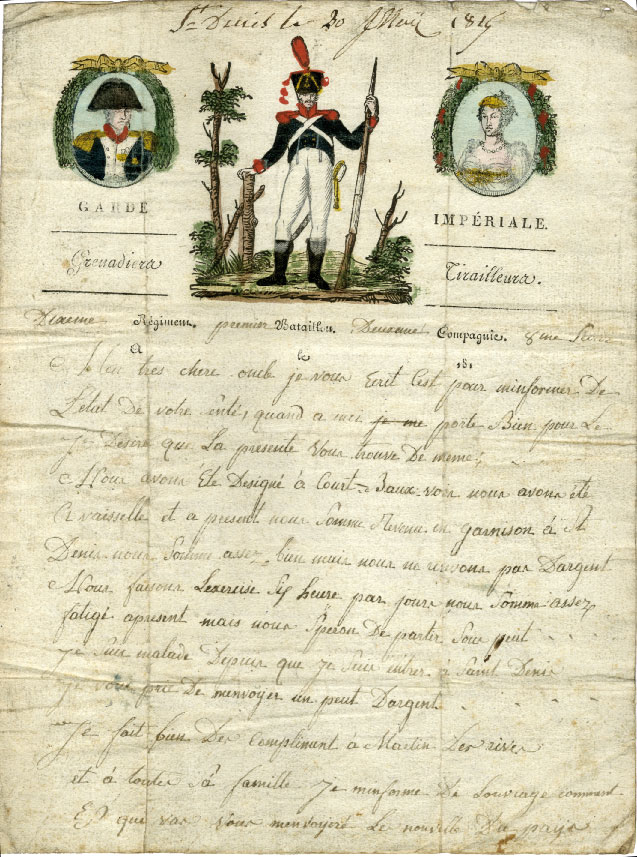 St Denis le 20 1813
GARDE IMPÉRIALE.
Grenadiers Tirailleurs.
Dixieme Régiment. premier Bataillon. Deuxieme Compagnie. 8me
A le 181
Mon tres chere oncle je vous Ecrit Cest pour minformer De
Letat de votre sente, quand a moi je me porte Bien pour Le
je Désire que La presente vous trouve De meme;
Nous avons Ete Designé à Courtevaux nous avons été
A vaisselle et a present nous Somme Revenu en garnison à St
Denis nous Somme assez bien mais nous ne recevons pas Dargent
Nous faisons Lexercise Six heure par jours nous Somme assez
fatigé apresent mais nous Speron De partir Sous peut
je Suis malade Depuis que je Suis entrer à Saint Denis
je vous prie De menvoyer un peut Dargent
Je fait bien Des Compliment à Martin Des rives
et à toute Sa famille je minforme De Louvrage comment
Es que vas vous menvoyere Le nouvelle Du pays